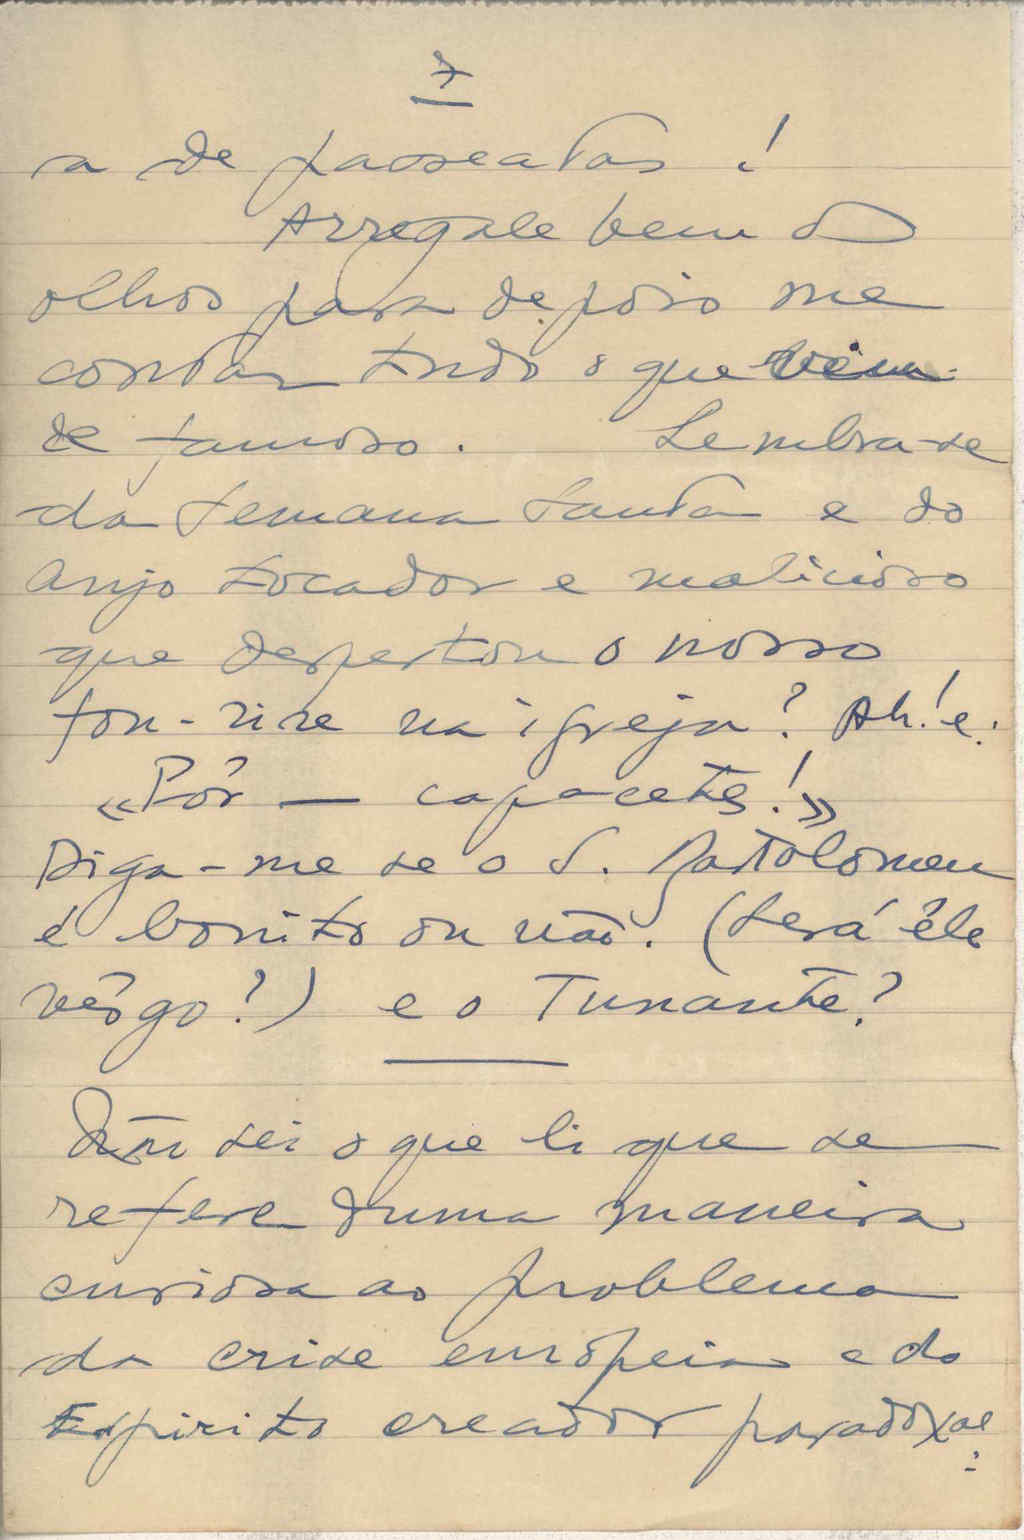 7
a de passeatas!
Arregale bem os
olhos para depois me
contar tudo o que vem
de famoso. Lembra-se
da semana santa e do
anjo tocador e malicioso
que despertou o nosso
fou-rire na igreja? Ah! e:
«Pôr — capacetes!»
Diga-me se o S. Bartolomeu
é bonito ou não. (Será êle
vêsgo?) e o Tunante?
Não sei o que li que se
refere duma maneira
curiosa ao problema
da crise europeia e do
Espirito creador paradoxal